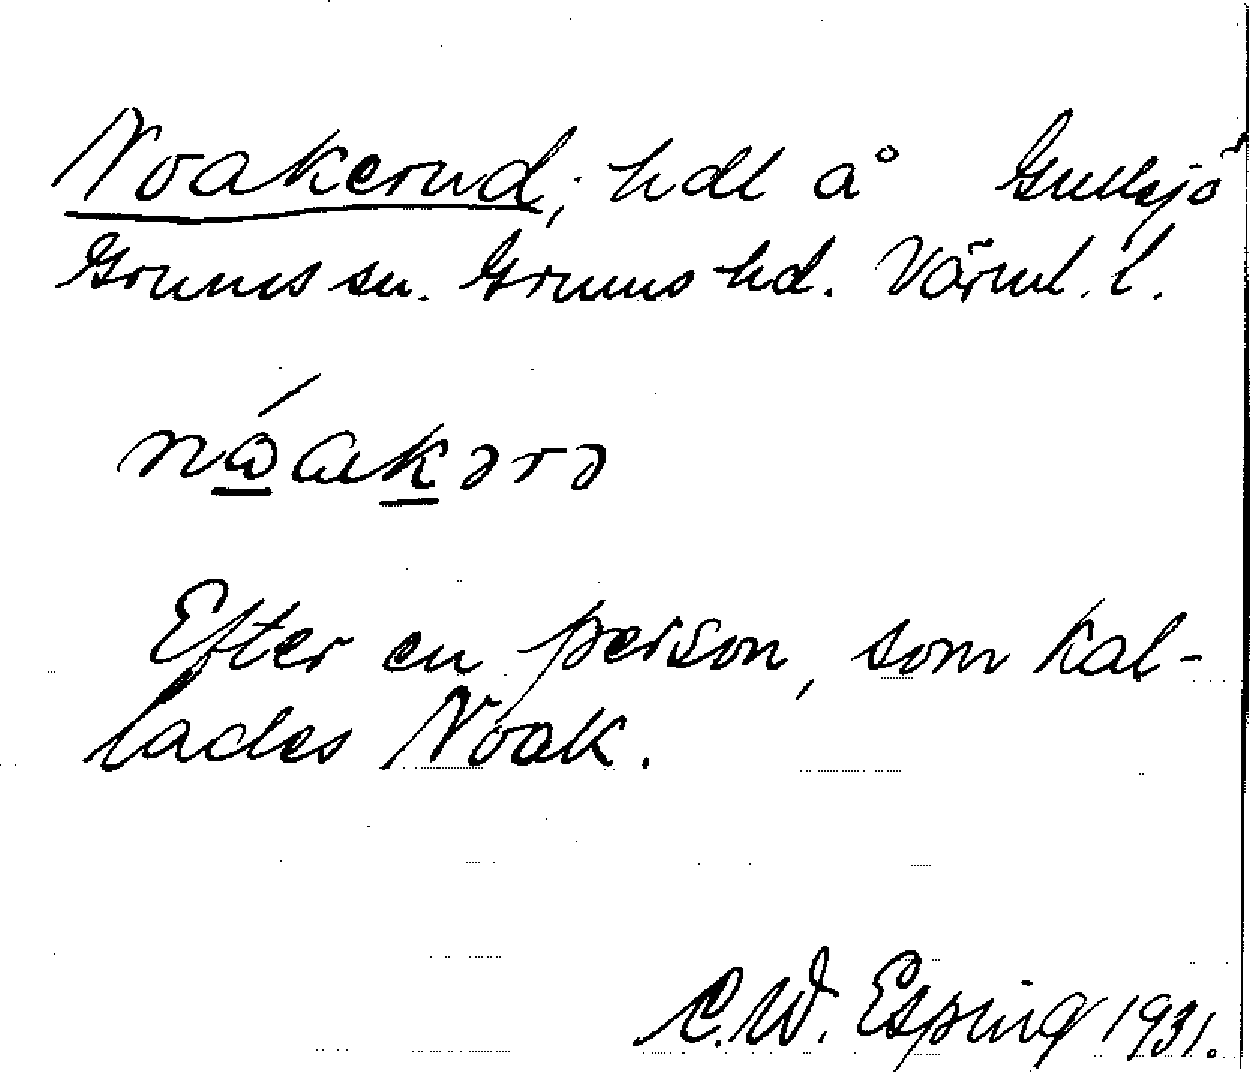 Noakerud, hdl å Gullsjö
Grums sn. Grums hd. Värml. l.
nǻakərə
Efter en person, som kal-
lades Noak.
C.W. Esping 1931.